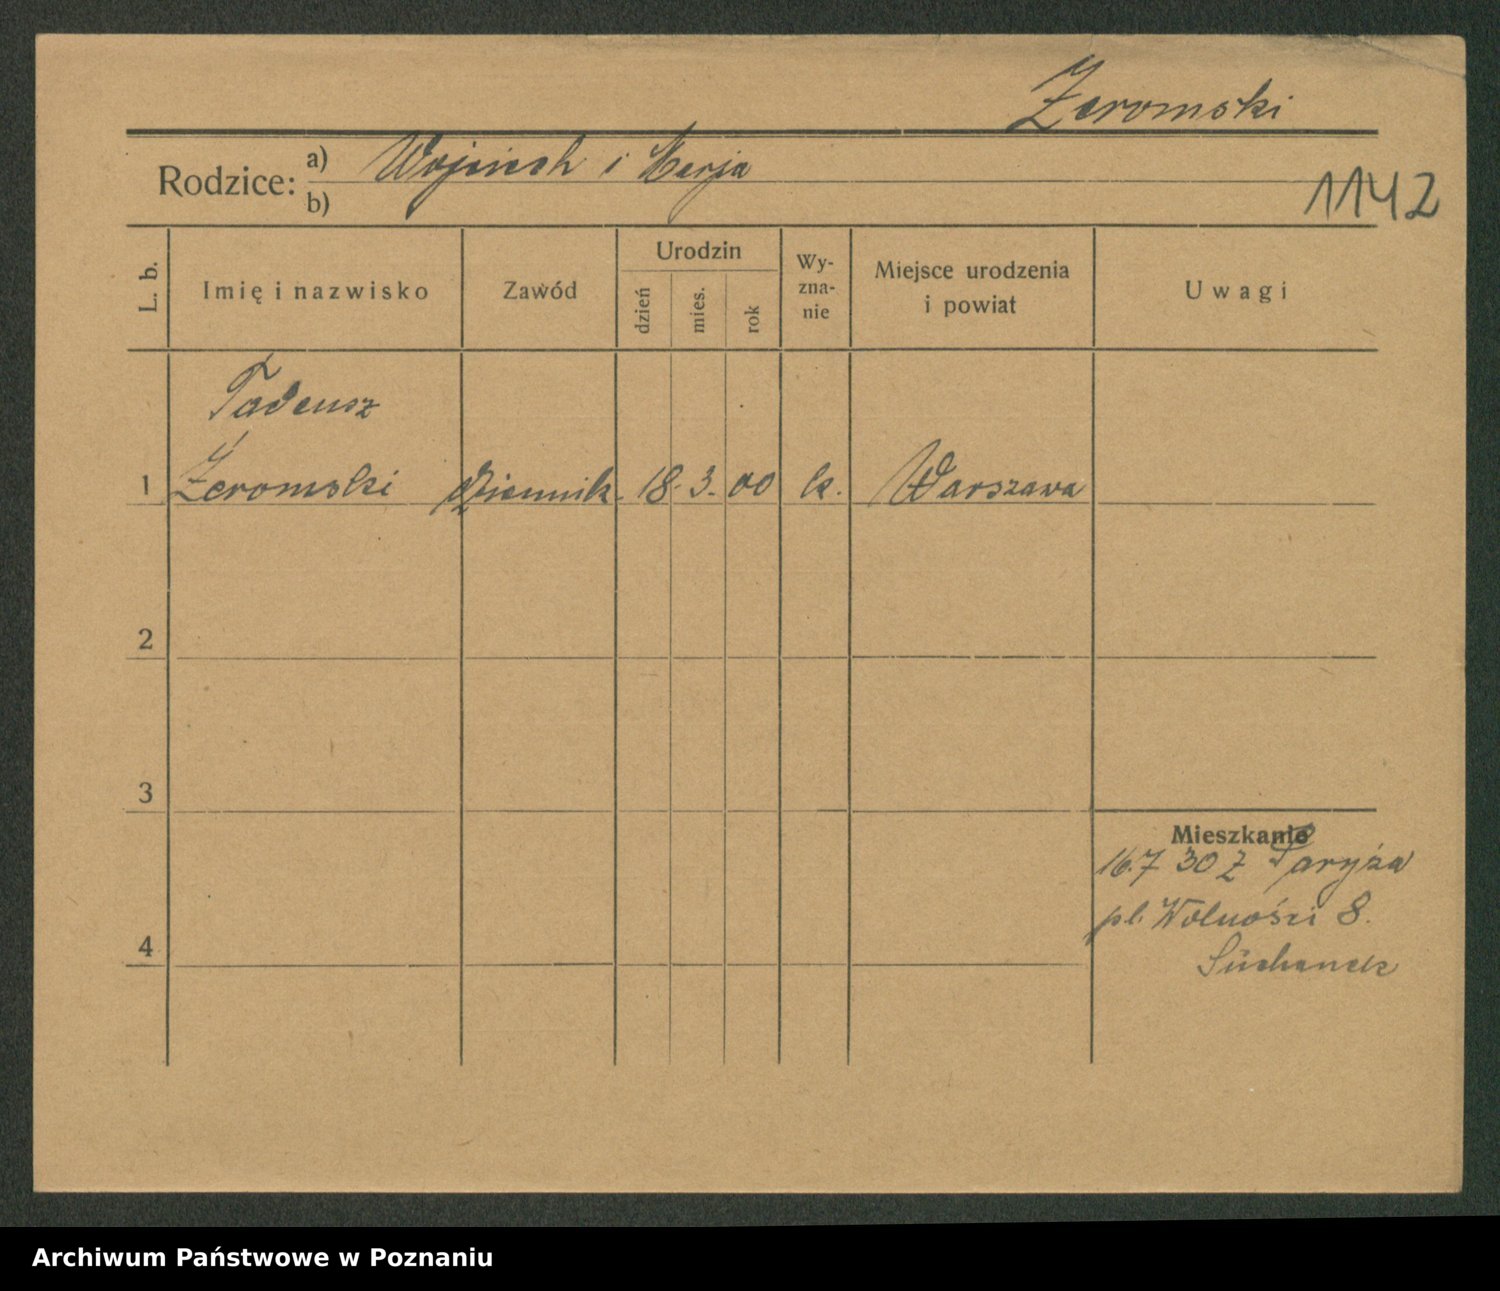 Żeromski
Rodzice: a) Wojciech i Marja
b)
1142
L. b. Imię i nazwisko Zawód Urodzin dzień mies. rok Wyznanie Miejsce urodzenia i powiat Uwagi
Tadeusz
1 Żeromski dziennik. 18. 3. 00 k. Warszawa
2
3
Mieszkanie
16.7 30 z Paryża
pl. Wolności 8.
4
Suchanek
Archiwum Państwowe w Poznaniu